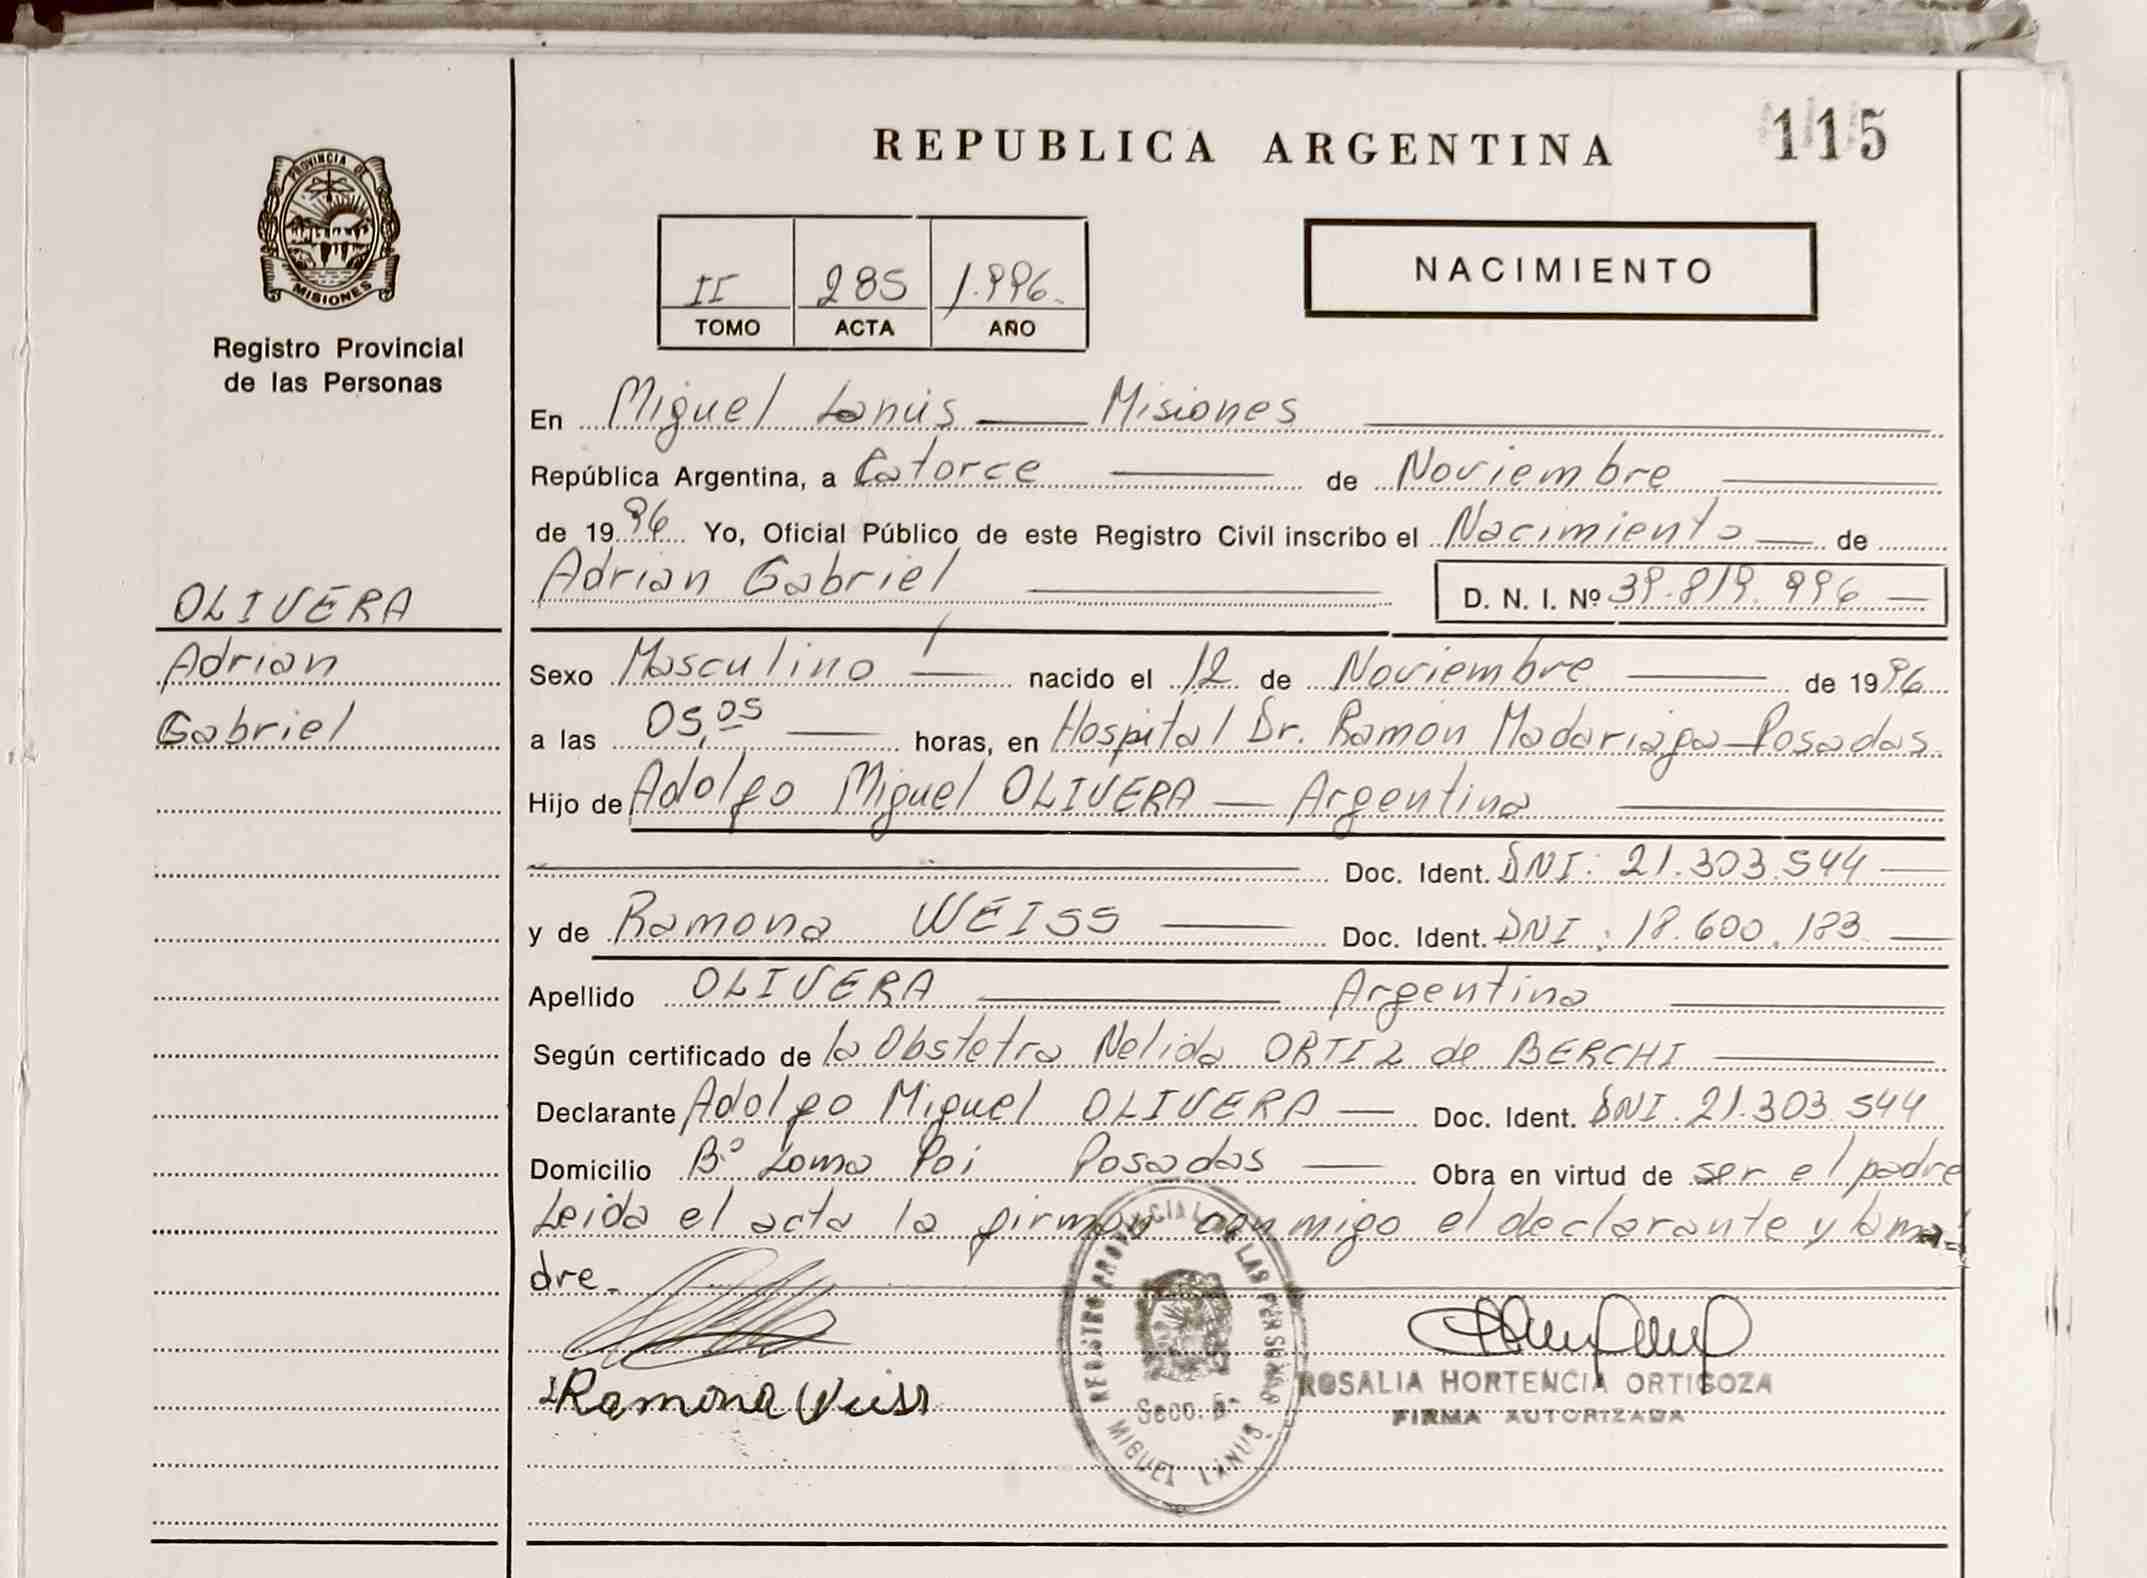 REPUBLICA ARGENTINA
115
PROVINCIA DE
MISIONES
Registro Provincial
de las Personas
II 285 1.996.
TOMO ACTA AÑO
NACIMIENTO
En Miguel Lanús Misiones
República Argentina, a Catorce de Noviembre
de 1996 Yo, Oficial Público de este Registro Civil inscribo el Nacimiento de
Adrian Gabriel D. N. I. Nº 39.819.996
OLIVERA
Adrian
Gabriel
Sexo Masculino nacido el 12 de Noviembre de 1996
a las 05,05 horas, en Hospital Dr. Ramón Madariaga Posadas
Hijo de Adolfo Miguel OLIVERA Argentina
Doc. Ident. DNI: 21.303.544
y de Ramona WEISS Doc. Ident. DNI: 18.600.183
Apellido OLIVERA Argentina
Según certificado de la Obstetra Nelida ORTIZ de BERCHI
Declarante Adolfo Miguel OLIVERA Doc. Ident. DNI. 21.303.544
Domicilio Bº Loma Poi Posadas Obra en virtud de ser el padre
Leida el acta la firman conmigo el declarante y la ma-
dre.
Ramona Weiss
REGISTRO PROVINCIAL DE LAS PERSONAS
Secc. 5ª
MIGUEL LANUS
ROSALIA HORTENCIA ORTIGOZA
FIRMA AUTORIZADA